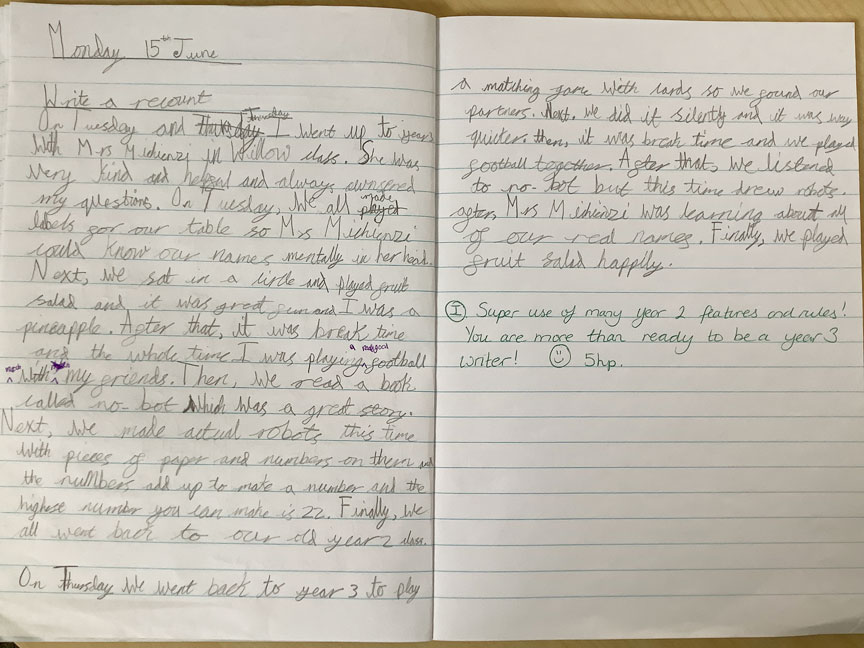 Monday 15th June
Write a recount
On Tuesday and Thursday I went up to year
With Mrs Michienzi in Willow class. She was
very kind and and always
my questions. On Tuesday, We all made
labels gor our table so Mrs Michienzi
could know our names mentally in her head.
Next, we sat in a and played fruit
salad and it was great gun and I was a
pineapple. Agter that, it was break time
and the whole time I was playing a good football
With my griends. Then, We read a book
called no-bot Which was a great story.
Next, we made actual robots this time
With pieces of paper and numbers on them and
the numbers add up to make a number and the
highest number you can make is 22. Finally, we
all went back to our old year 2 class.
On Thursday We went back to year 3 to play
a matching game With cards so we gound our
partners. Next, we did it silently and it was way
quiter. then, it was break time and we played
gootball together. Agter that, we listened
to no-bot but this time drew robots.
agter, Mrs Michienzi was learning about all
of our real names. Finally, we played
fruit salad happlly.
I Super use of many year 2 features and rules!
You are more than ready to be a year 3
writer! 5hp.